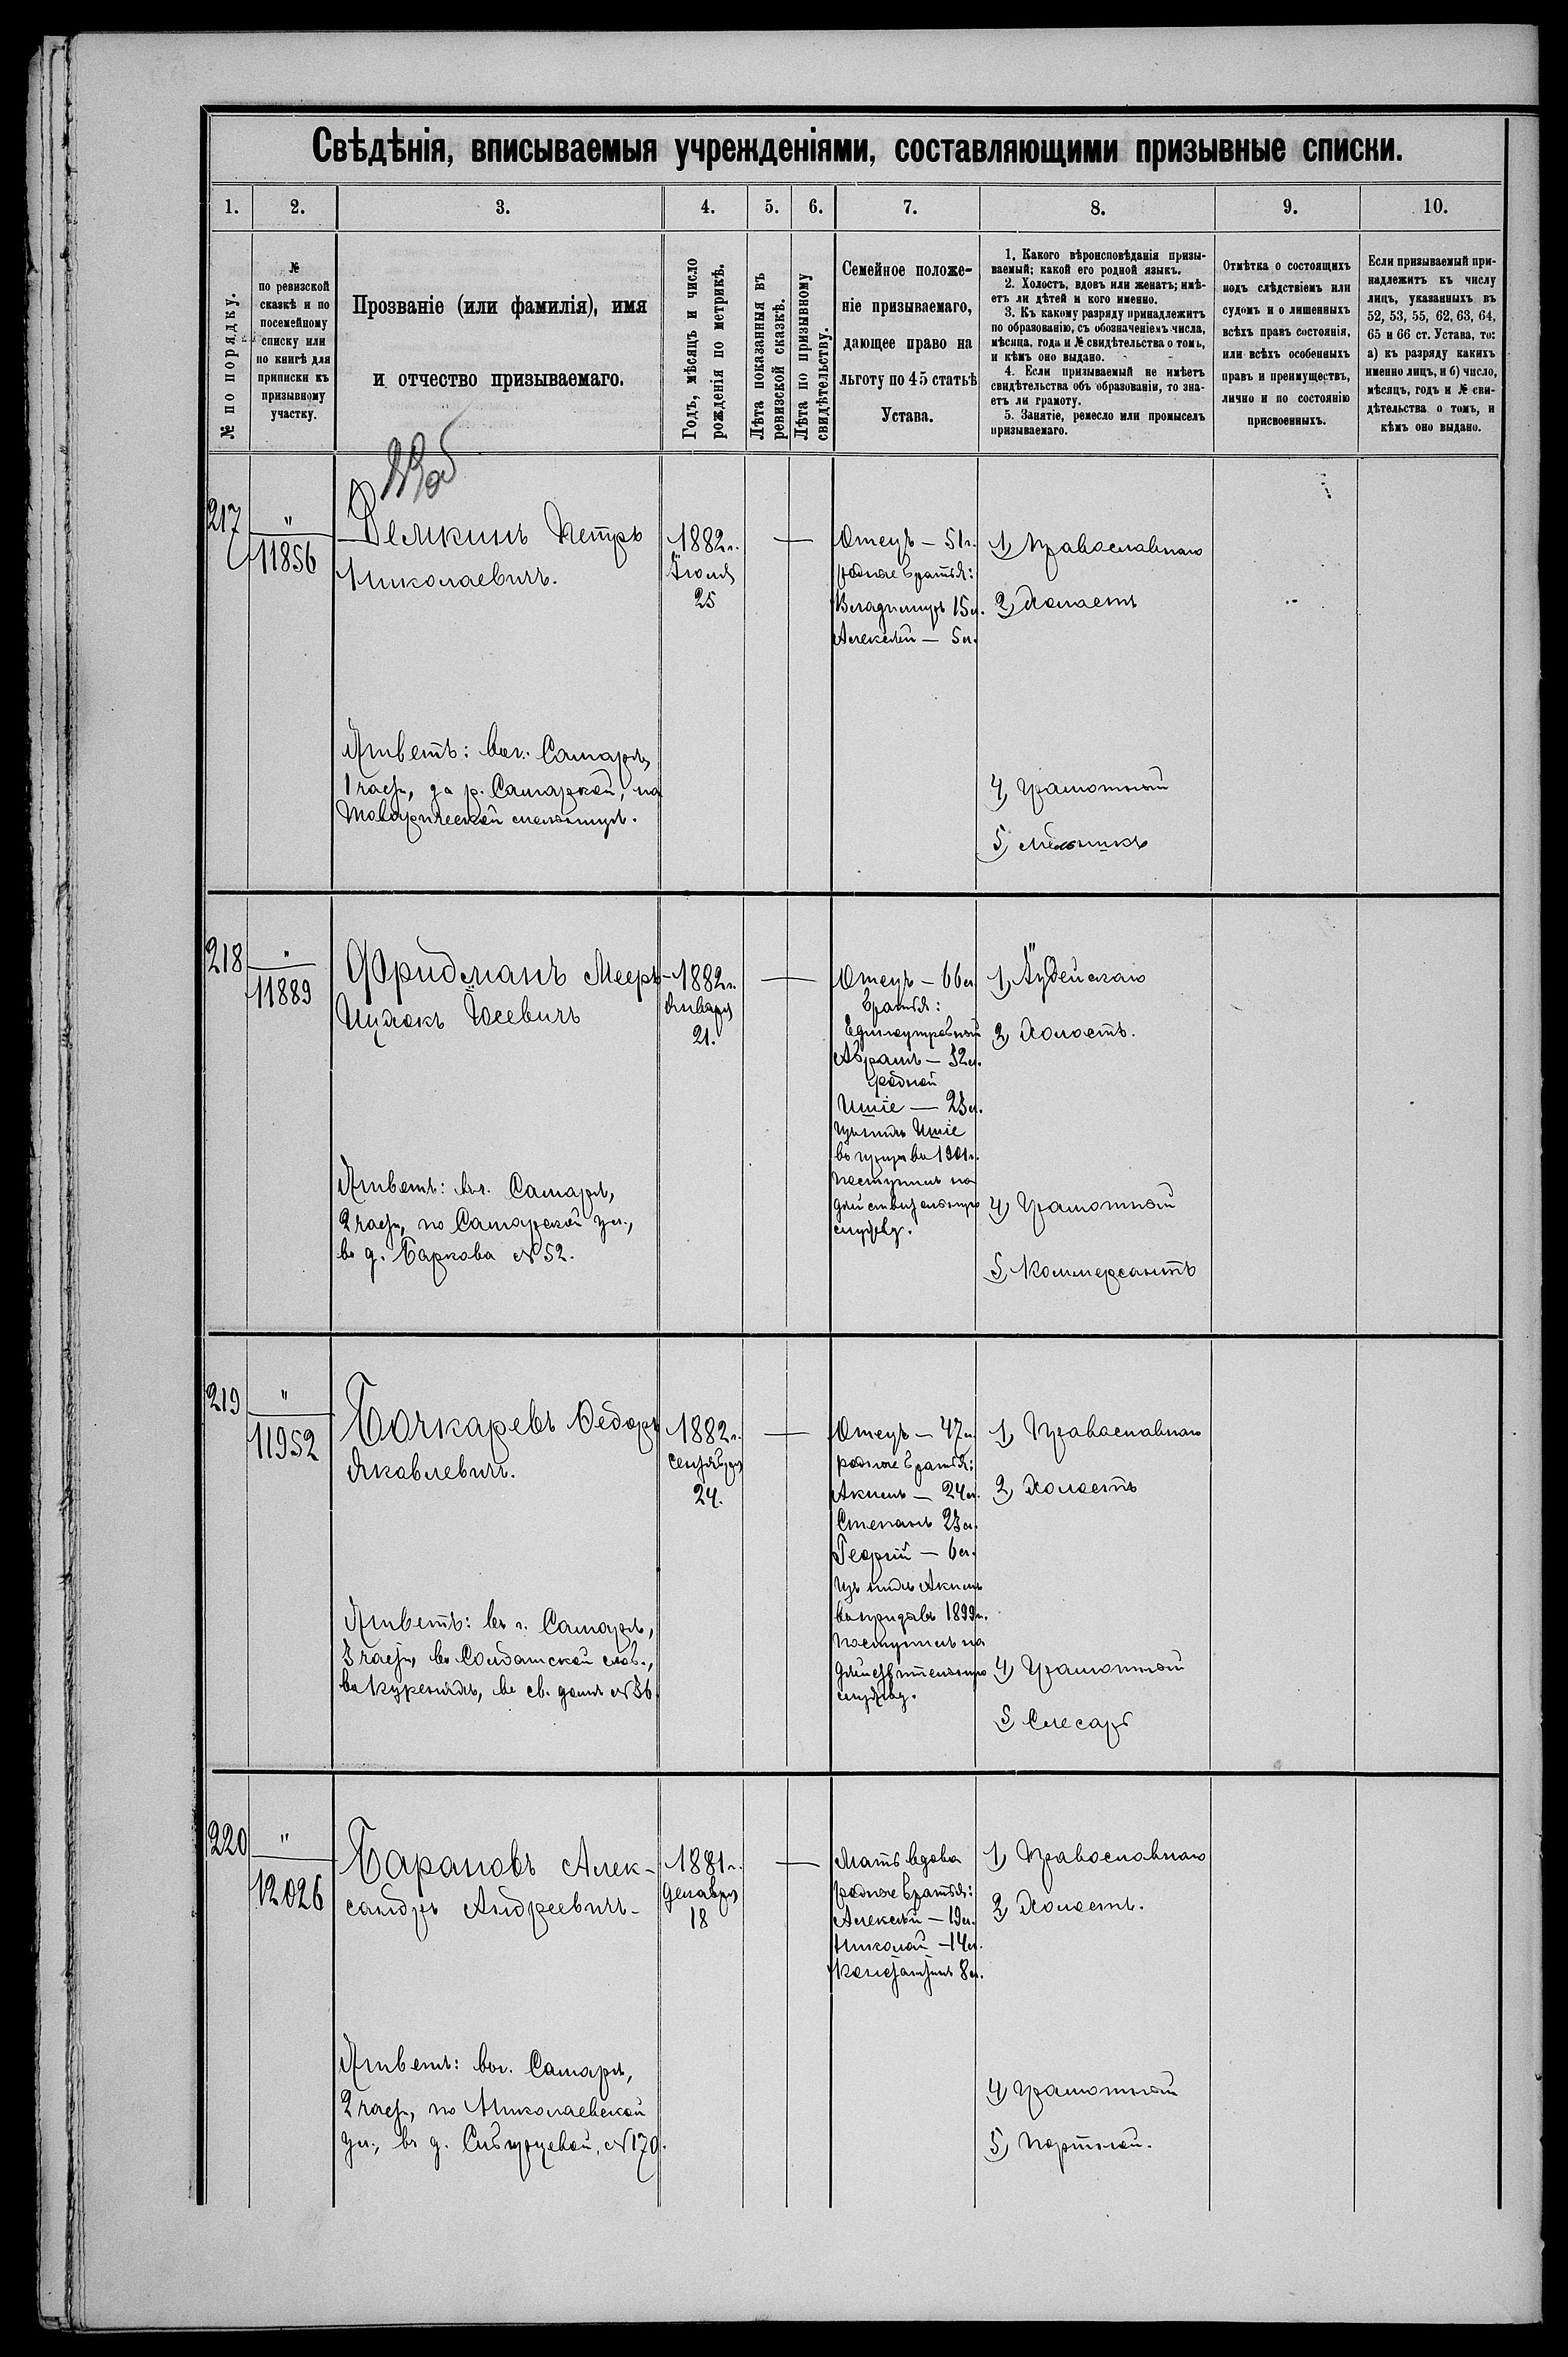 Свѣдѣнія, вписываемыя учрежденіями, составляющими призывные списки.
1. 2. 3. 4. 5. 6. 7. 8. 9. 10.
№ по порядку.
№
по ревизской
сказкѣ и по
посемейному
списку или
по книгѣ для
приписки къ
призывному
участку.
Прозваніе (или фамилія), имя
и отчество призываемаго.
Годъ, мѣсяцъ и число
рожденія по метрикѣ.
Лѣта показанныя въ
ревизской сказкѣ.
Лѣта по призывному
свидѣтельству.
Семейное положе-
ніе призываемаго,
дающее право на
льготу по 45 статьѣ
Устава.
1. Какого вѣроисповѣданія призы-
ваемый; какой его родной языкъ.
2. Холостъ, вдовъ или женатъ; имѣ-
етъ ли дѣтей и кого именно.
3. Къ какому разряду принадлежитъ
по образованію, съ обозначеніемъ числа,
мѣсяца, года и № свидѣтельства о томъ,
и кѣмъ оно выдано.
4. Если призываемый не имѣетъ
свидѣтельства объ образованіи, то зна-
етъ ли грамоту.
5. Занятіе, ремесло или промыселъ
призываемаго.
Отмѣтка о состоящихъ
подъ слѣдствіемъ или
судомъ и о лишенныхъ
всѣхъ правъ состоянія,
или всѣхъ особенныхъ
правъ и преимуществъ,
лично и по состоянію
присвоенныхъ.
Если призываемый при-
надлежитъ къ числу
лицъ, указанныхъ въ
52, 53, 55, 62, 63, 64,
65 и 66 ст. Устава, то:
а) къ разряду какихъ
именно лицъ, и б) число,
мѣсяцъ, годъ и № сви-
дѣтельства о томъ, и
кѣмъ оно выдано.
217
"
11856
Демкинъ Петръ
Николаевичъ.
Живетъ: въ г. Самарѣ,
1 части, за р. Самаркой, на
мельницѣ.
1882 г.
Іюля
25
Отецъ — 51 г.
родные братья:
Владиміръ 15 л.
Алексѣй — 5 л.
1) Православнаго
2) Холостъ
4) Грамотный
5) Мельникъ
218
"
11889
Фридманъ Мееръ-
Ицекъ Іосевичъ
Живетъ: въ г. Самарѣ,
2 части, по Самарской ул.,
въ д. Баркова № 52.
1882 г.
Января
21.
Отецъ — 66 л.
братья:
Единоутробный
Абрамъ — 32 л.
родной
Ишіе — 23 л.
Изъ нихъ Ишіе
въ призывъ 1901 г.
поступилъ на
дѣйствительную
службу.
1) Іудейскаго
2) Холостъ.
4) Грамотный
5) Коммерсантъ
219
"
11952
Бочкаревъ Ѳедоръ
Яковлевичъ.
Живетъ: въ г. Самарѣ,
3 части, въ Солдатской слоб.,
въ Куреняхъ, въ св. домѣ № 36.
1882 г.
сентября
24.
Отецъ — 47 л.
родные братья:
Акимъ — 24 л.
Степанъ 23 л.
Георгій — 6 л.
Изъ нихъ Акимъ
въ призывъ 1899 г.
поступилъ на
дѣйствительную
службу.
1) Православнаго
2) Холостъ
4) Грамотный
5) Слесарь
220
"
12026
Барановъ Алек-
сандръ Андреевичъ.
Живетъ: въ г. Самарѣ,
2 части, по Николаевской
ул., въ д. № 170.
1881 г.
декабря
18
Мать вдова
родные братья:
Алексѣй — 19 л.
Николай — 14 л.
Константинъ 8 л.
1) Православнаго
2) Холостъ.
4) Грамотный
5) Портной.